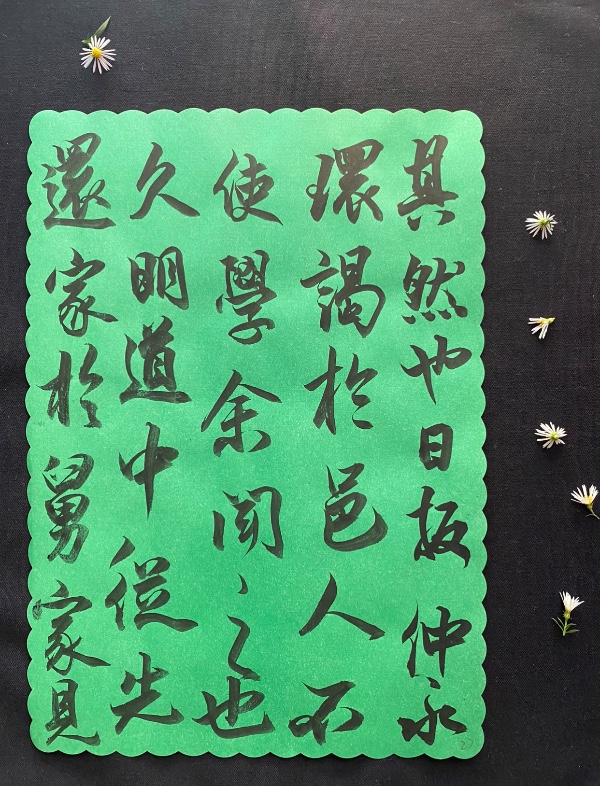 其然也日扳仲永
環謁於邑人不
使學余聞之也
久明道中從先
還家於舅家見